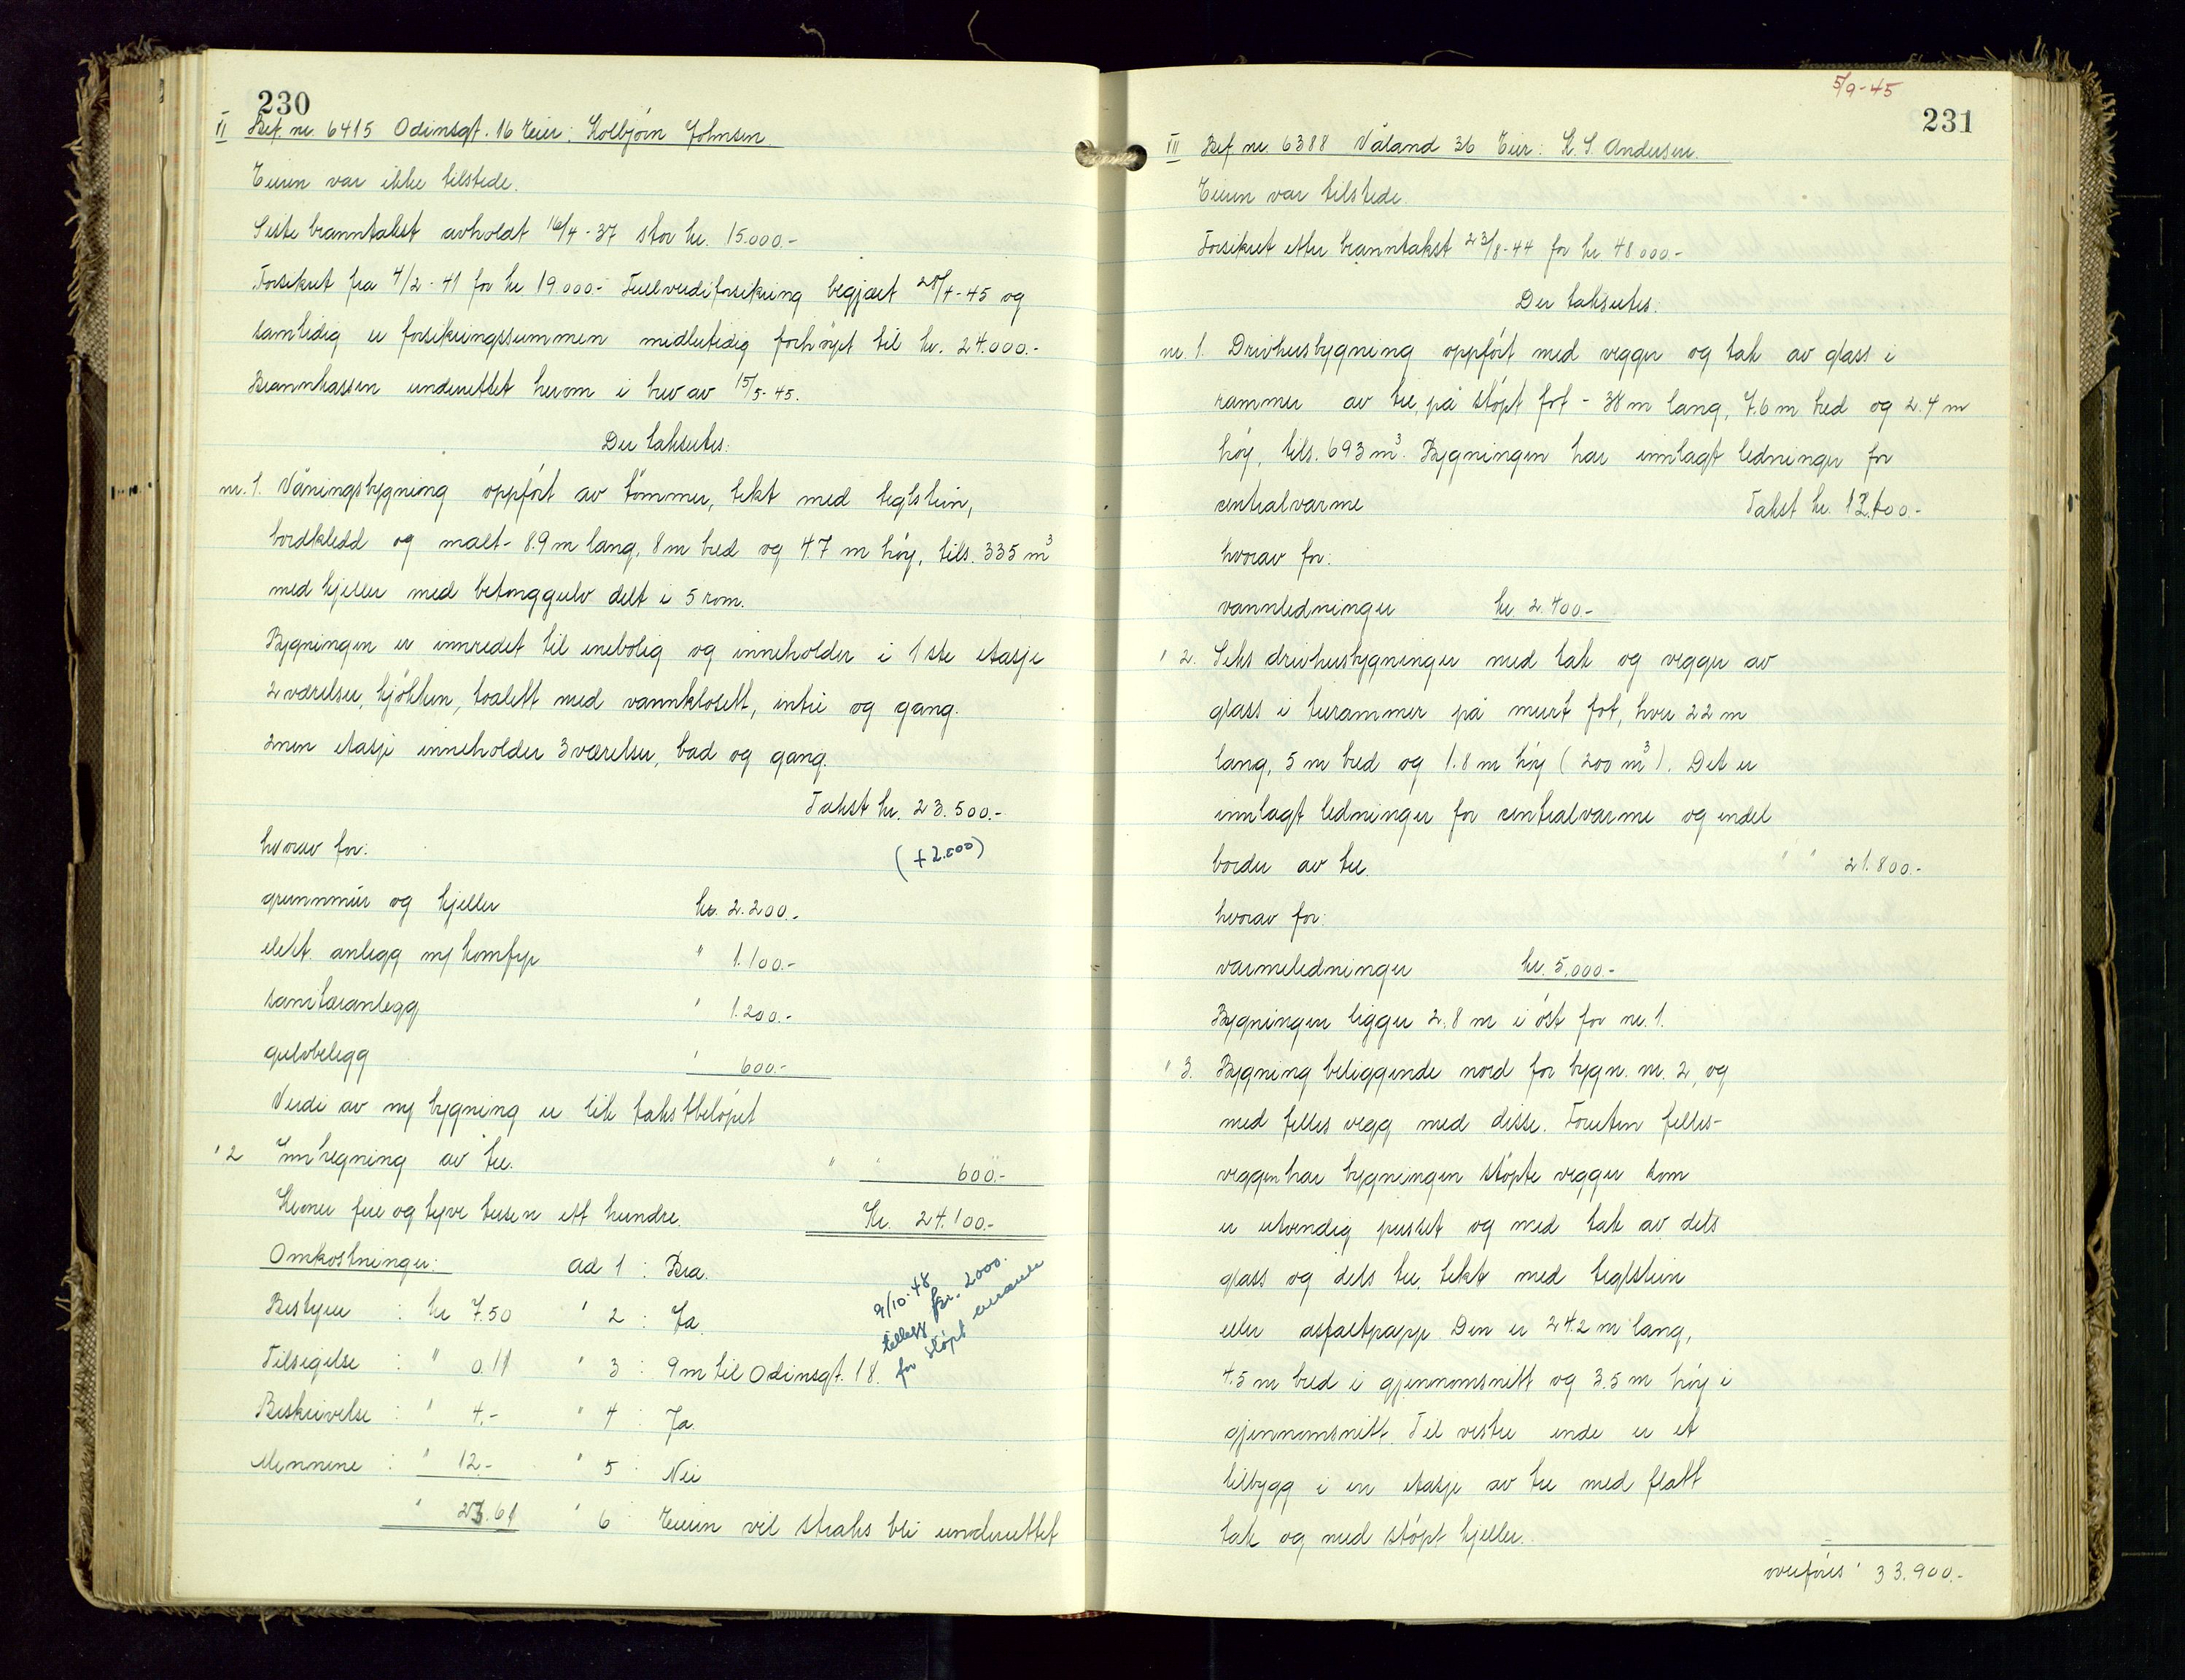 230
VI Bef. nr. 6415 Odinsgt. 16 Eier: Kolbjörn Johnsen
Eieren var ikke tilstede.
Siste branntakst avholdt 16/4-37 stor kr. 15.000.-
Forsikret fra 4/2-41 for kr 19.000.- Fullverdiforsikring begjært 28/4-45 og
samtidig er forsikringssummen midlertidig forhöyet til kr. 24.000.-
Brannkassen underrettet herom i brev av 15/5-45.
Der takseres:
nr. 1. Våningsbygning oppfört av tömmer, tekt med teglstein,
bordkledd og malt - 8.9 m lang, 8 m bred og 4.7 m höy, tils. 335 m³
med kjeller med betonggulv delt i 5 rom.
Bygningen er innredet til enebolig og inneholder i 1ste etasje
2 værelser, kjökken, toalett med vannklosett, entré og gang.
2nen etasje inneholder 3 værelser, bad og gang.
Takst kr. 23.500.-
(+2.000)
hvorav for:
grunnmur og kjeller kr. 2.200.-
elekt. anlegg m/ komfyr " 1.100.-
sanitæranlegg " 1.200.-
gulvbelegg " 600.-
Verdi av ny bygning er lik takstbelöpet
" 2 Innhegning av tre. " " 600.-
Kroner fire og tyve tusen ett hundre. Kr. 24.100.-
Omkostninger: ad 1 : Bra.
Bestyrer : kr 7.50 " 2 : Ja.
Tilsigelse : " 0.11 " 3 : 9 m til Odinsgt. 18.
Beskrivelse : " 4.- " 4 : Ja.
Mennene : " 12.- " 5 : Nei
" 23.61 " 6 Eieren vil straks bli underrettet
9/10-48
tillegg kr. 2000.
for stöpt
5/9-45
231
VII Bef. nr. 6388 Våland 36 Eier: K. S. Andersen.
Eieren var tilstede.
Forsikret etter branntakst 23/8-44 for kr 48.000.-
Der takseres:
nr. 1. Drivhusbygning oppfört med vegger og tak av glass i
rammer av tre, på stöpt fot - 38 m lang, 7.6 m bred og 2.4 m
höy, tils. 693 m³. Bygningen har innlagt ledninger for
sentralvarme Takst kr. 12.100.-
hvorav for:
vannledninger kr 2.400.-
" 2. Seks drivhusbygninger med tak og vegger av
glass i trerammer på murt fot, hver 22 m
lang, 5 m bred og 1.8 m höy (200 m³). Det er
innlagt ledninger for sentralvarme og endel
border av tre. " " 21.800.-
hvorav for:
varmeledninger kr. 5.000.-
Bygningen ligger 2.8 m i öst for nr. 1.
" 3. Bygning beliggende nord for bygn. nr. 2, og
med felles vegg med disse. Foruten felles-
veggen har bygningen stöpte vegger som
er utvendig pusset og med tak av dels
glass og dels tre, tekt med teglstein
eller asfaltpapp. Den er 24.2 m lang,
4.5 m bred i gjennomsnitt og 3.5 m höy i
gjennomsnitt. Til vestre ende er et
tilbygg i en etasje av tre med flatt
tak og med stöpt kjeller.
overföres " 33.900.-